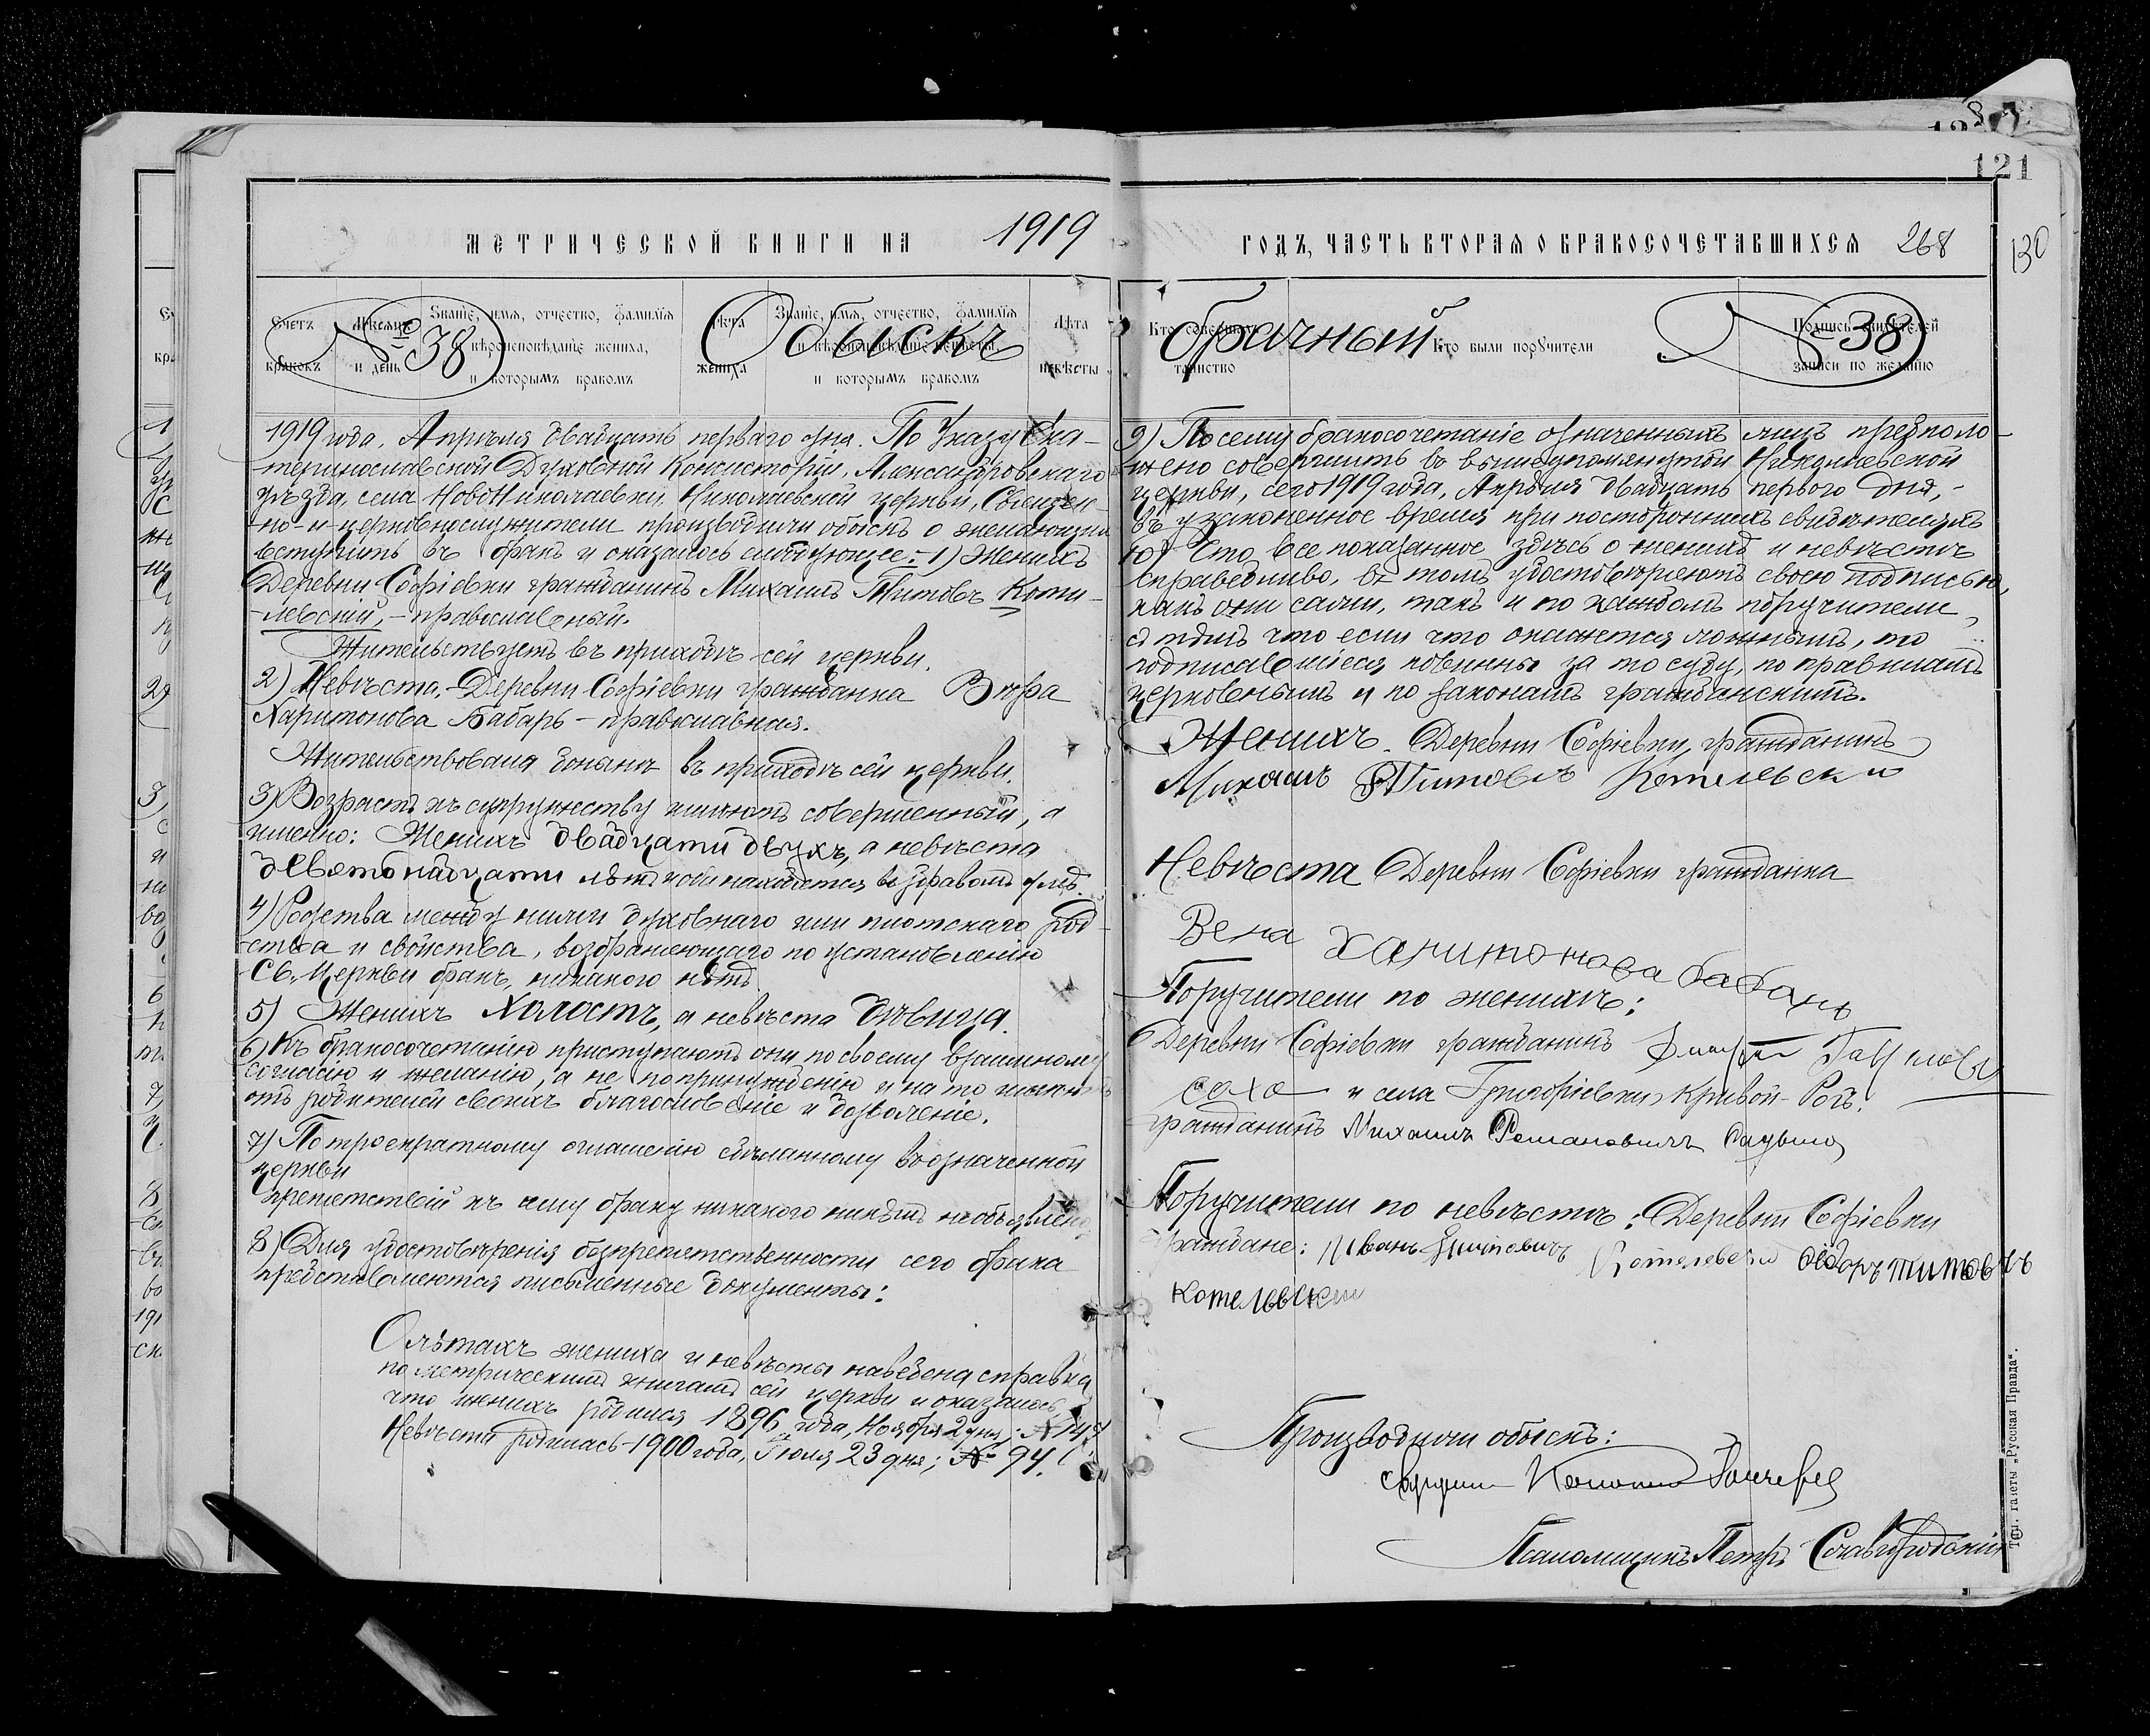 121
МЕТРИЧЕСКОЙ КНИГИ НА 1919
ГОДЪ, ЧАСТЬ ВТОРАЯ О БРАКОСОЧЕТАВШИХСЯ 268
130
Счетъ браковъ
Мѣсяцъ и день
Званіе, имя, отчество, фамилія и вѣроисповѣданіе жениха, и которымъ бракомъ
Лѣта жениха
Званіе, имя, отчество, фамилія и вѣроисповѣданіе невѣсты и которымъ бракомъ
Лѣта невѣсты
Кто совершалъ таинство
Кто были поручители
Подпись свидѣтелей записи по желанію
№ 38 Обыскъ
брачный № 38
1919 года, Апрѣля двадцать перваго дня. По Указу Ека-
теринославской Духовной Консисторіи, Александровскаго
уѣзда, села Новониколаевки, Николаевской церкви, Священ-
но- и церковнослужители производили обыскъ о желающихъ
вступить въ бракъ и оказалось слѣдующее: 1) Женихъ
Деревни Софіевки гражданинъ Михаилъ Титовъ Коти-
левскій, - православный.
Жительствуетъ въ приходѣ сей церкви.
2) Невѣста. - Деревни Софіевки гражданка Вѣра
Харитонова Бабарь - православная.
Жительствовала донынѣ въ приходѣ сей церкви.
3) Возрастъ къ супружеству имѣютъ совершенный, а
именно: Женихъ двадцати двухъ, а невѣста
девятнадцати лѣтъ и оба находятся въ здравомъ умѣ.
4) Родства между ними духовнаго или плотскаго род-
ства и свойства, возбраняющаго по установленію
Св. Церкви бракъ, никакого нѣтъ.
5) Женихъ Холостъ, а невѣста дѣвица.
6) Къ бракосочетанію приступаютъ они по своему взаимному
согласію и желанію, а не по принужденію и на то имѣютъ
отъ родителей своихъ благословеніе и дозволеніе.
7) По троекратному оглашенію сдѣланному въ означенной
церкви
препятствій къ сему браку никакого никѣмъ не объявлено.
8) Для удостовѣренія безпрепятственности сего брака
представляются письменные документы:
О лѣтахъ жениха и невѣсты наведена справка
по метрическимъ книгамъ сей церкви и оказалось,
что женихъ родился 1896 года, Ноября 2 дня; № 147
Невѣста родилась - 1900 года, Іюля 23 дня; № 94.
9) По сему бракосочетаніе означенныхъ лицъ предполо-
жено совершить въ вышеупомянутой Николаевской
церкви, сего 1919 года, Апрѣля двадцать первого дня, -
въ узаконенное время при постороннихъ свидѣтеляхъ
10) Что все показанное здѣсь о женихѣ и невѣстѣ
справедливо, въ томъ удостовѣряютъ своею подписью,
какъ они сами, такъ и по каждомъ поручители,
съ тѣмъ что если что окажется ложнымъ, то
подписавшіеся повинны за то суду, по правиламъ
церковнымъ и по законамъ гражданскимъ.
Женихъ. Деревни Софіевки, гражданинъ
Михаилъ Титовичъ Котелевски
Невѣста Деревни Софіевки гражданка
Вера Харитонова бабарь
Поручители по женихѣ:
Деревни Софіевки гражданинъ
саха и села Григорьевки, Кривой-Рогъ.
гражданинъ Михаилъ Романовичъ
Поручители по невѣстѣ: Деревни Софіевки
граждане: Иванъ Котелевски Ѳедоръ титовичъ
котелевски
Производили обыскъ:
Псаломщикъ Петръ Славгородскій
Тип. газеты „Русская Правда“.